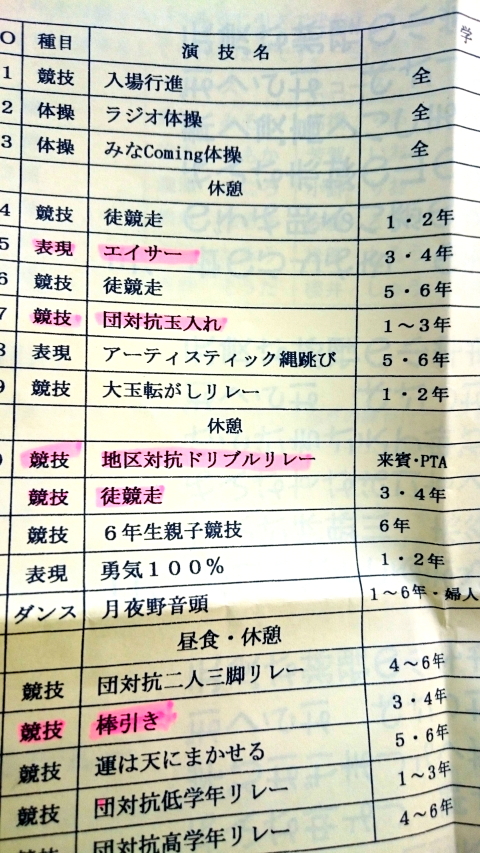 O 種目 演技名 学
1 競技 入場行進 全
2 体操 ラジオ体操 全
3 体操 みなComing体操 全
休憩
4 競技 徒競走 1・2年
5 表現 エイサー 3・4年
6 競技 徒競走 5・6年
7 競技 団対抗玉入れ 1〜3年
8 表現 アーティスティック縄跳び 5・6年
9 競技 大玉転がしリレー 1・2年
休憩
競技 地区対抗ドリブルリレー 来賓・PTA
競技 徒競走 3・4年
競技 6年生親子競技 6年
表現 勇気100% 1・2年
ダンス 月夜野音頭 1〜6年・婦人
昼食・休憩
競技 団対抗二人三脚リレー 4〜6年
競技 棒引き 3・4年
競技 運は天にまかせる 5・6年
競技 団対抗低学年リレー 1〜3年
競技 団対抗高学年リレー 4〜6年